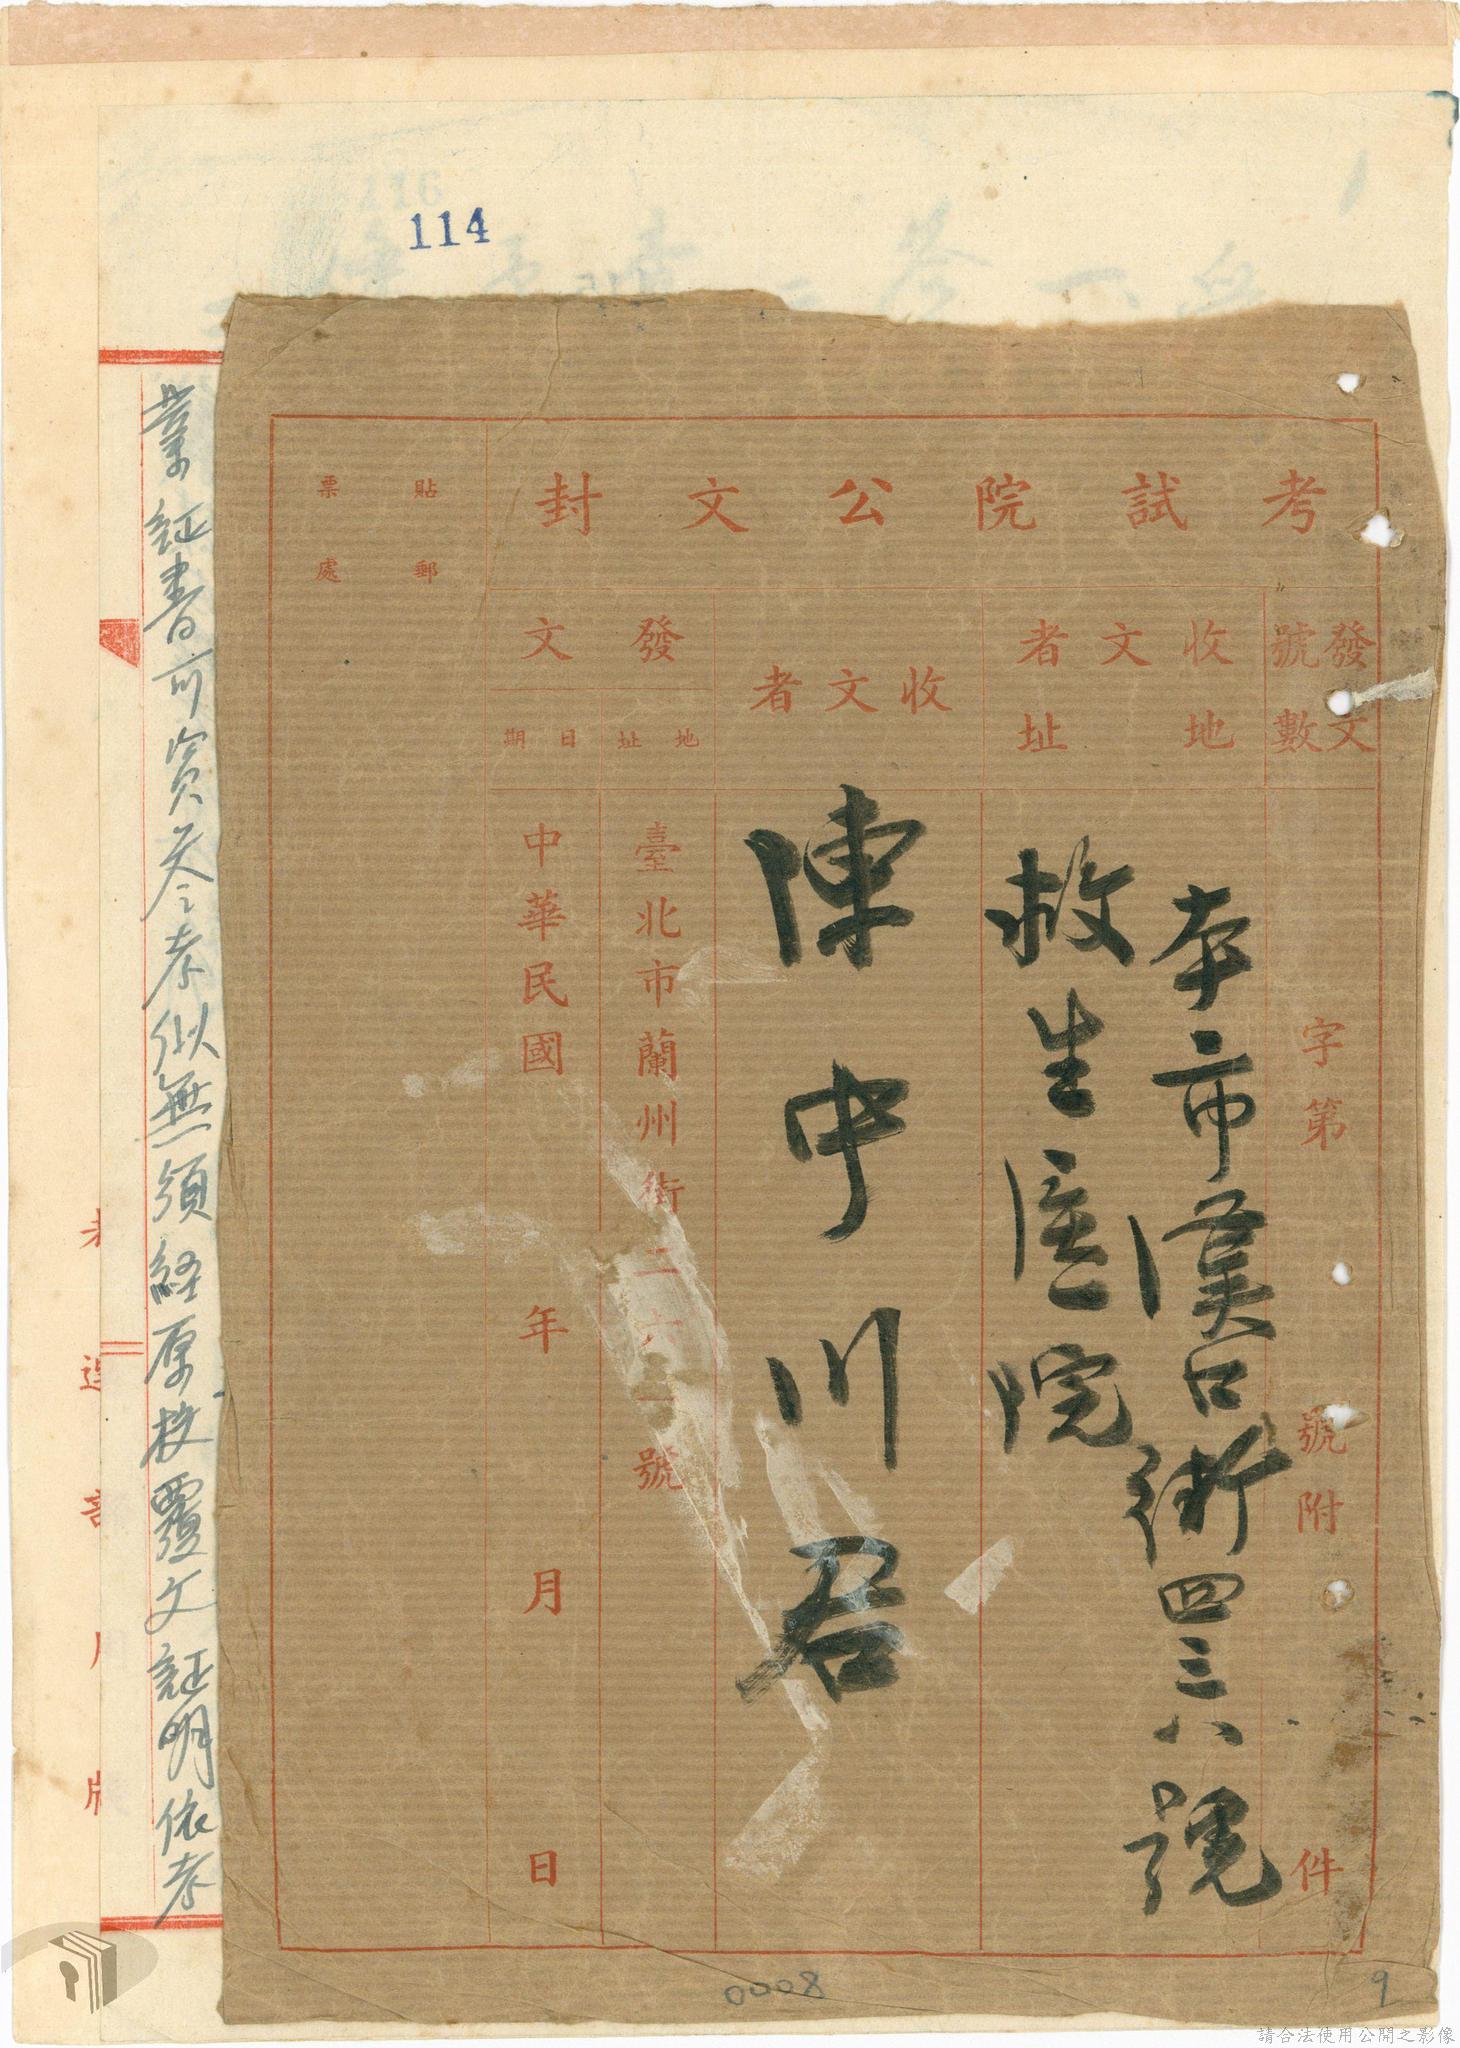 114
考試院公文封
貼郵票處
發文號數
字第 號附 件
收文者地址
本市漢口街四三八號
救生医院
收文者
陳中川君
發文
地址
臺北市蘭州街二六一號
日期
中華民國 年 月 日
業証書可資参考似無須経原校覆文証明依考
0008
9
請合法使用公開之影像